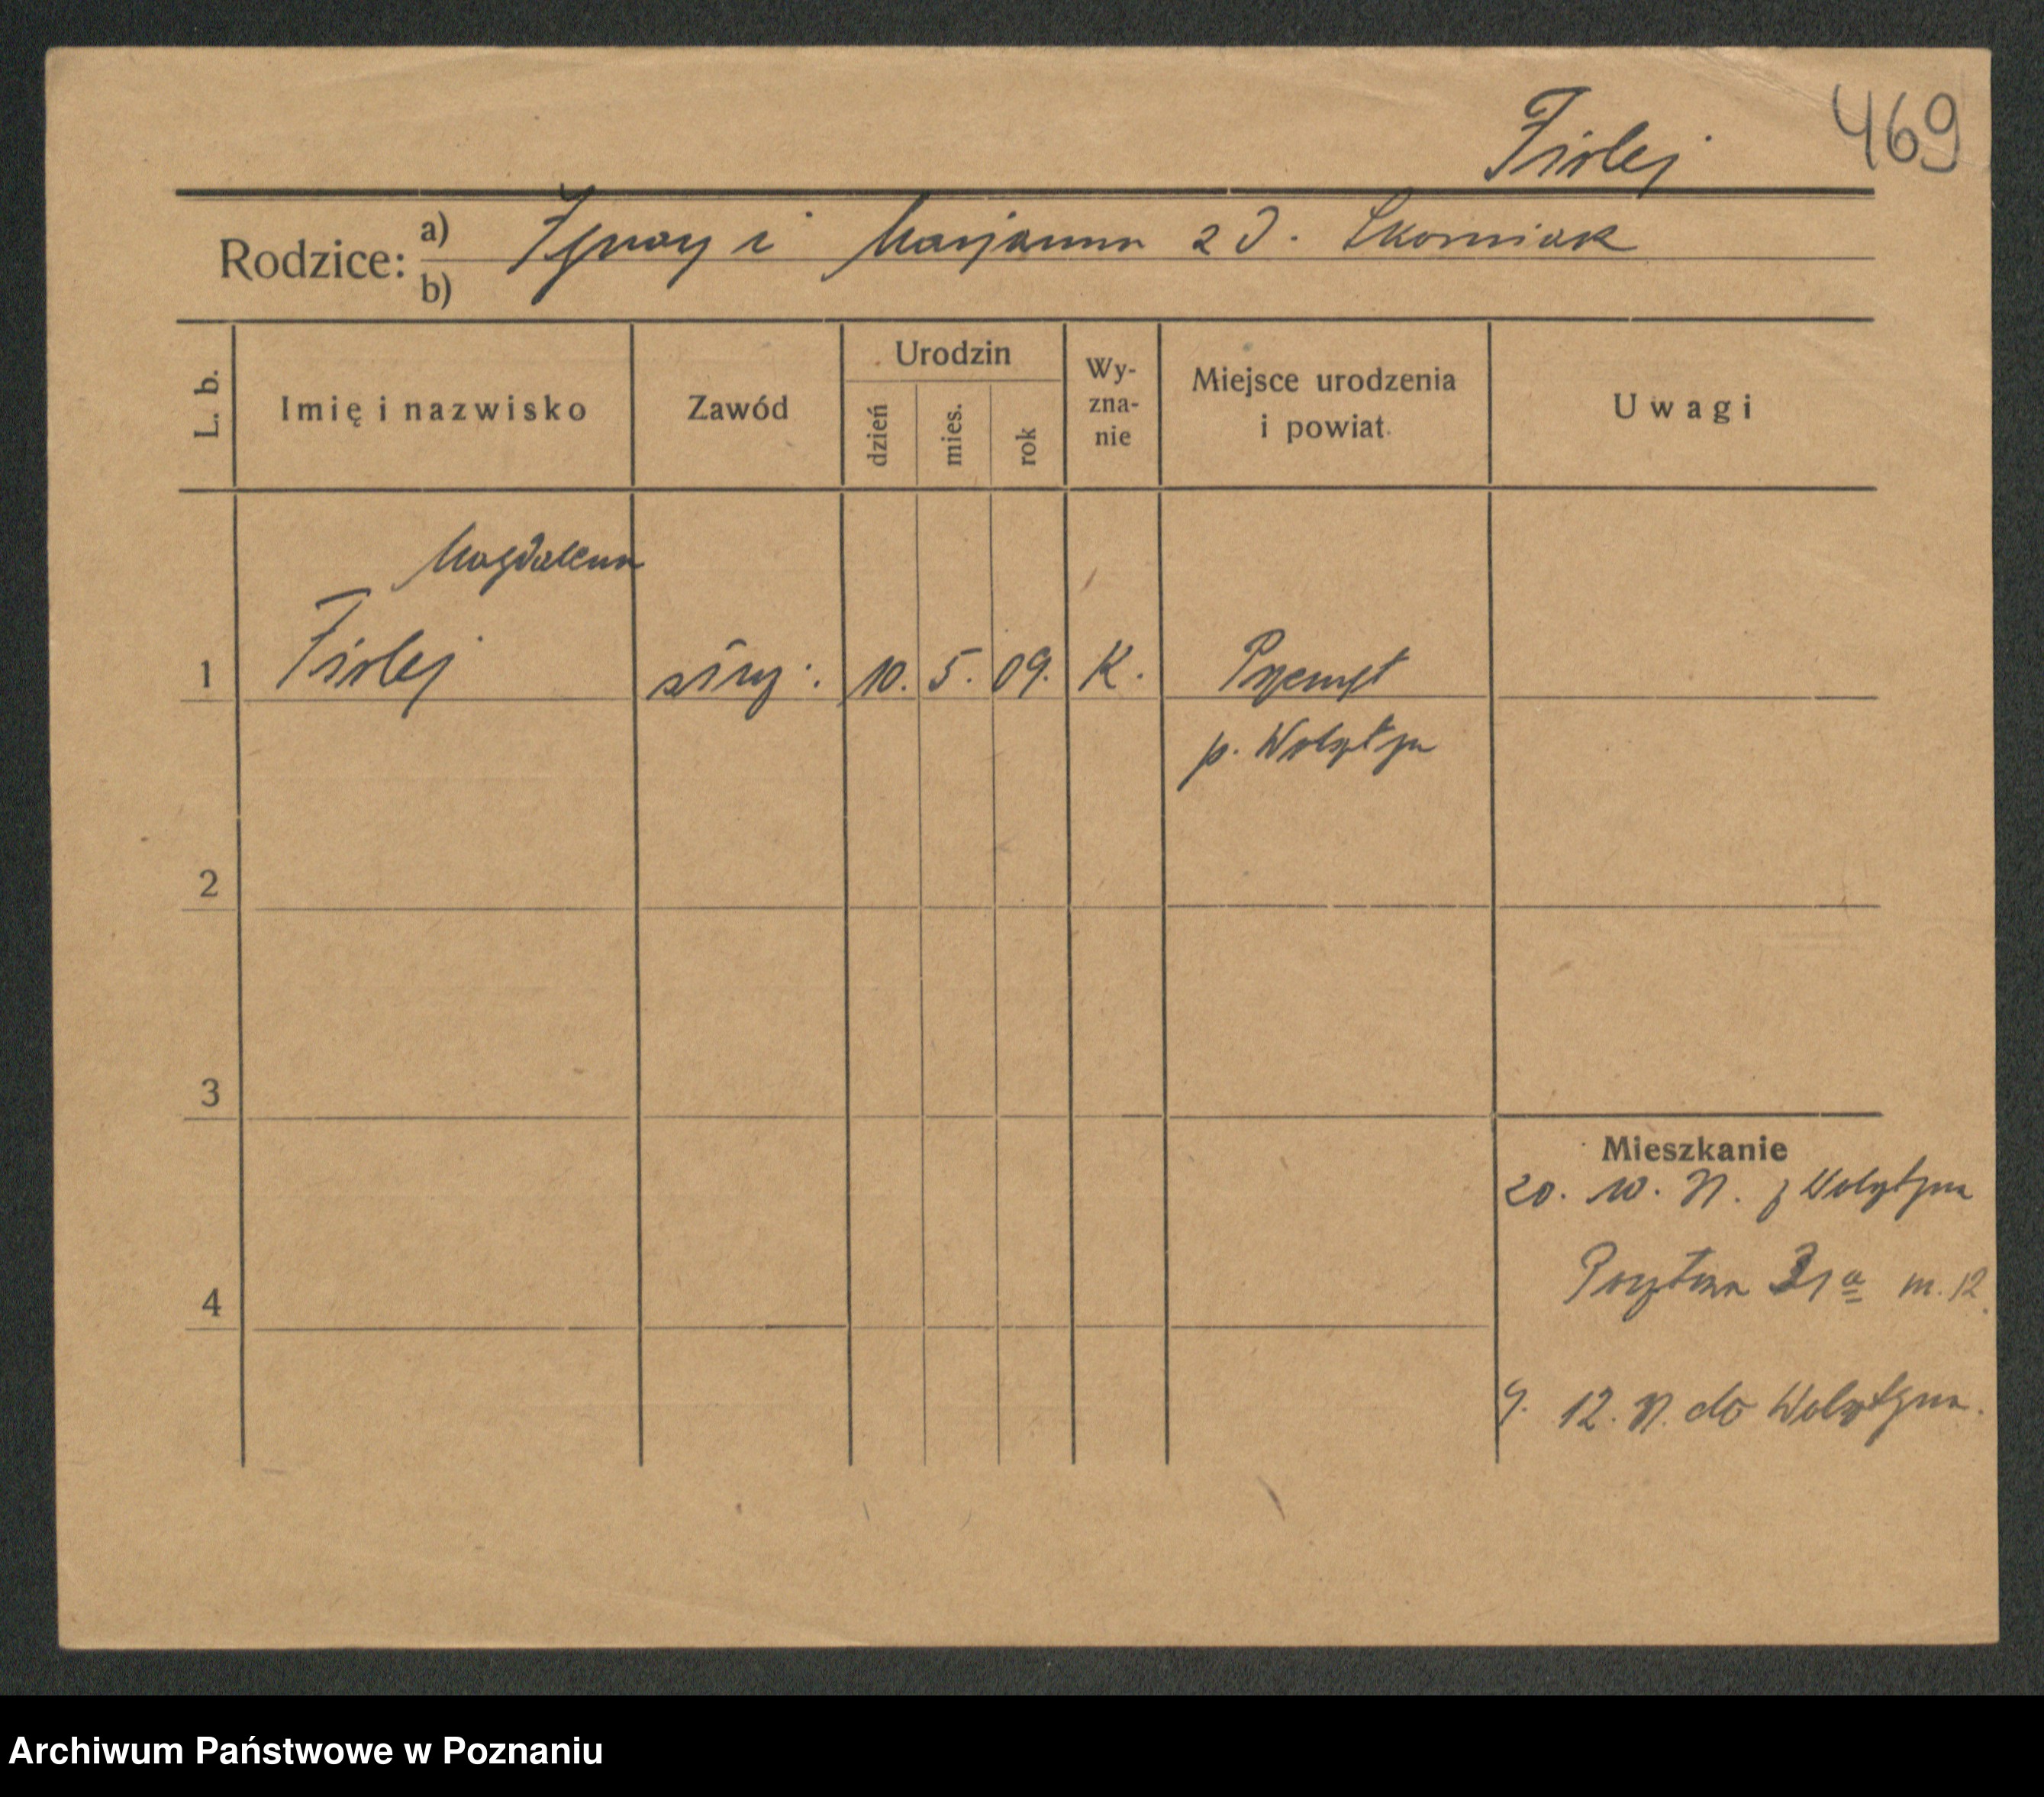 469
Fiolej
Rodzice: a) Ignacy i Marjanna z d. Skorniak
b)
L. b. Imię i nazwisko Zawód Urodzin dzień mies. rok Wy-zna-nie Miejsce urodzenia i powiat. Uwagi
Magdalena
1 Fiolej służ. 10. 5. 09. K. Przemęt
p. Wolsztyn
2
3
Mieszkanie
20. 10. z Wolsztyna
31a m. 12
4
9. 12. do Wolsztyna.
Archiwum Państwowe w Poznaniu